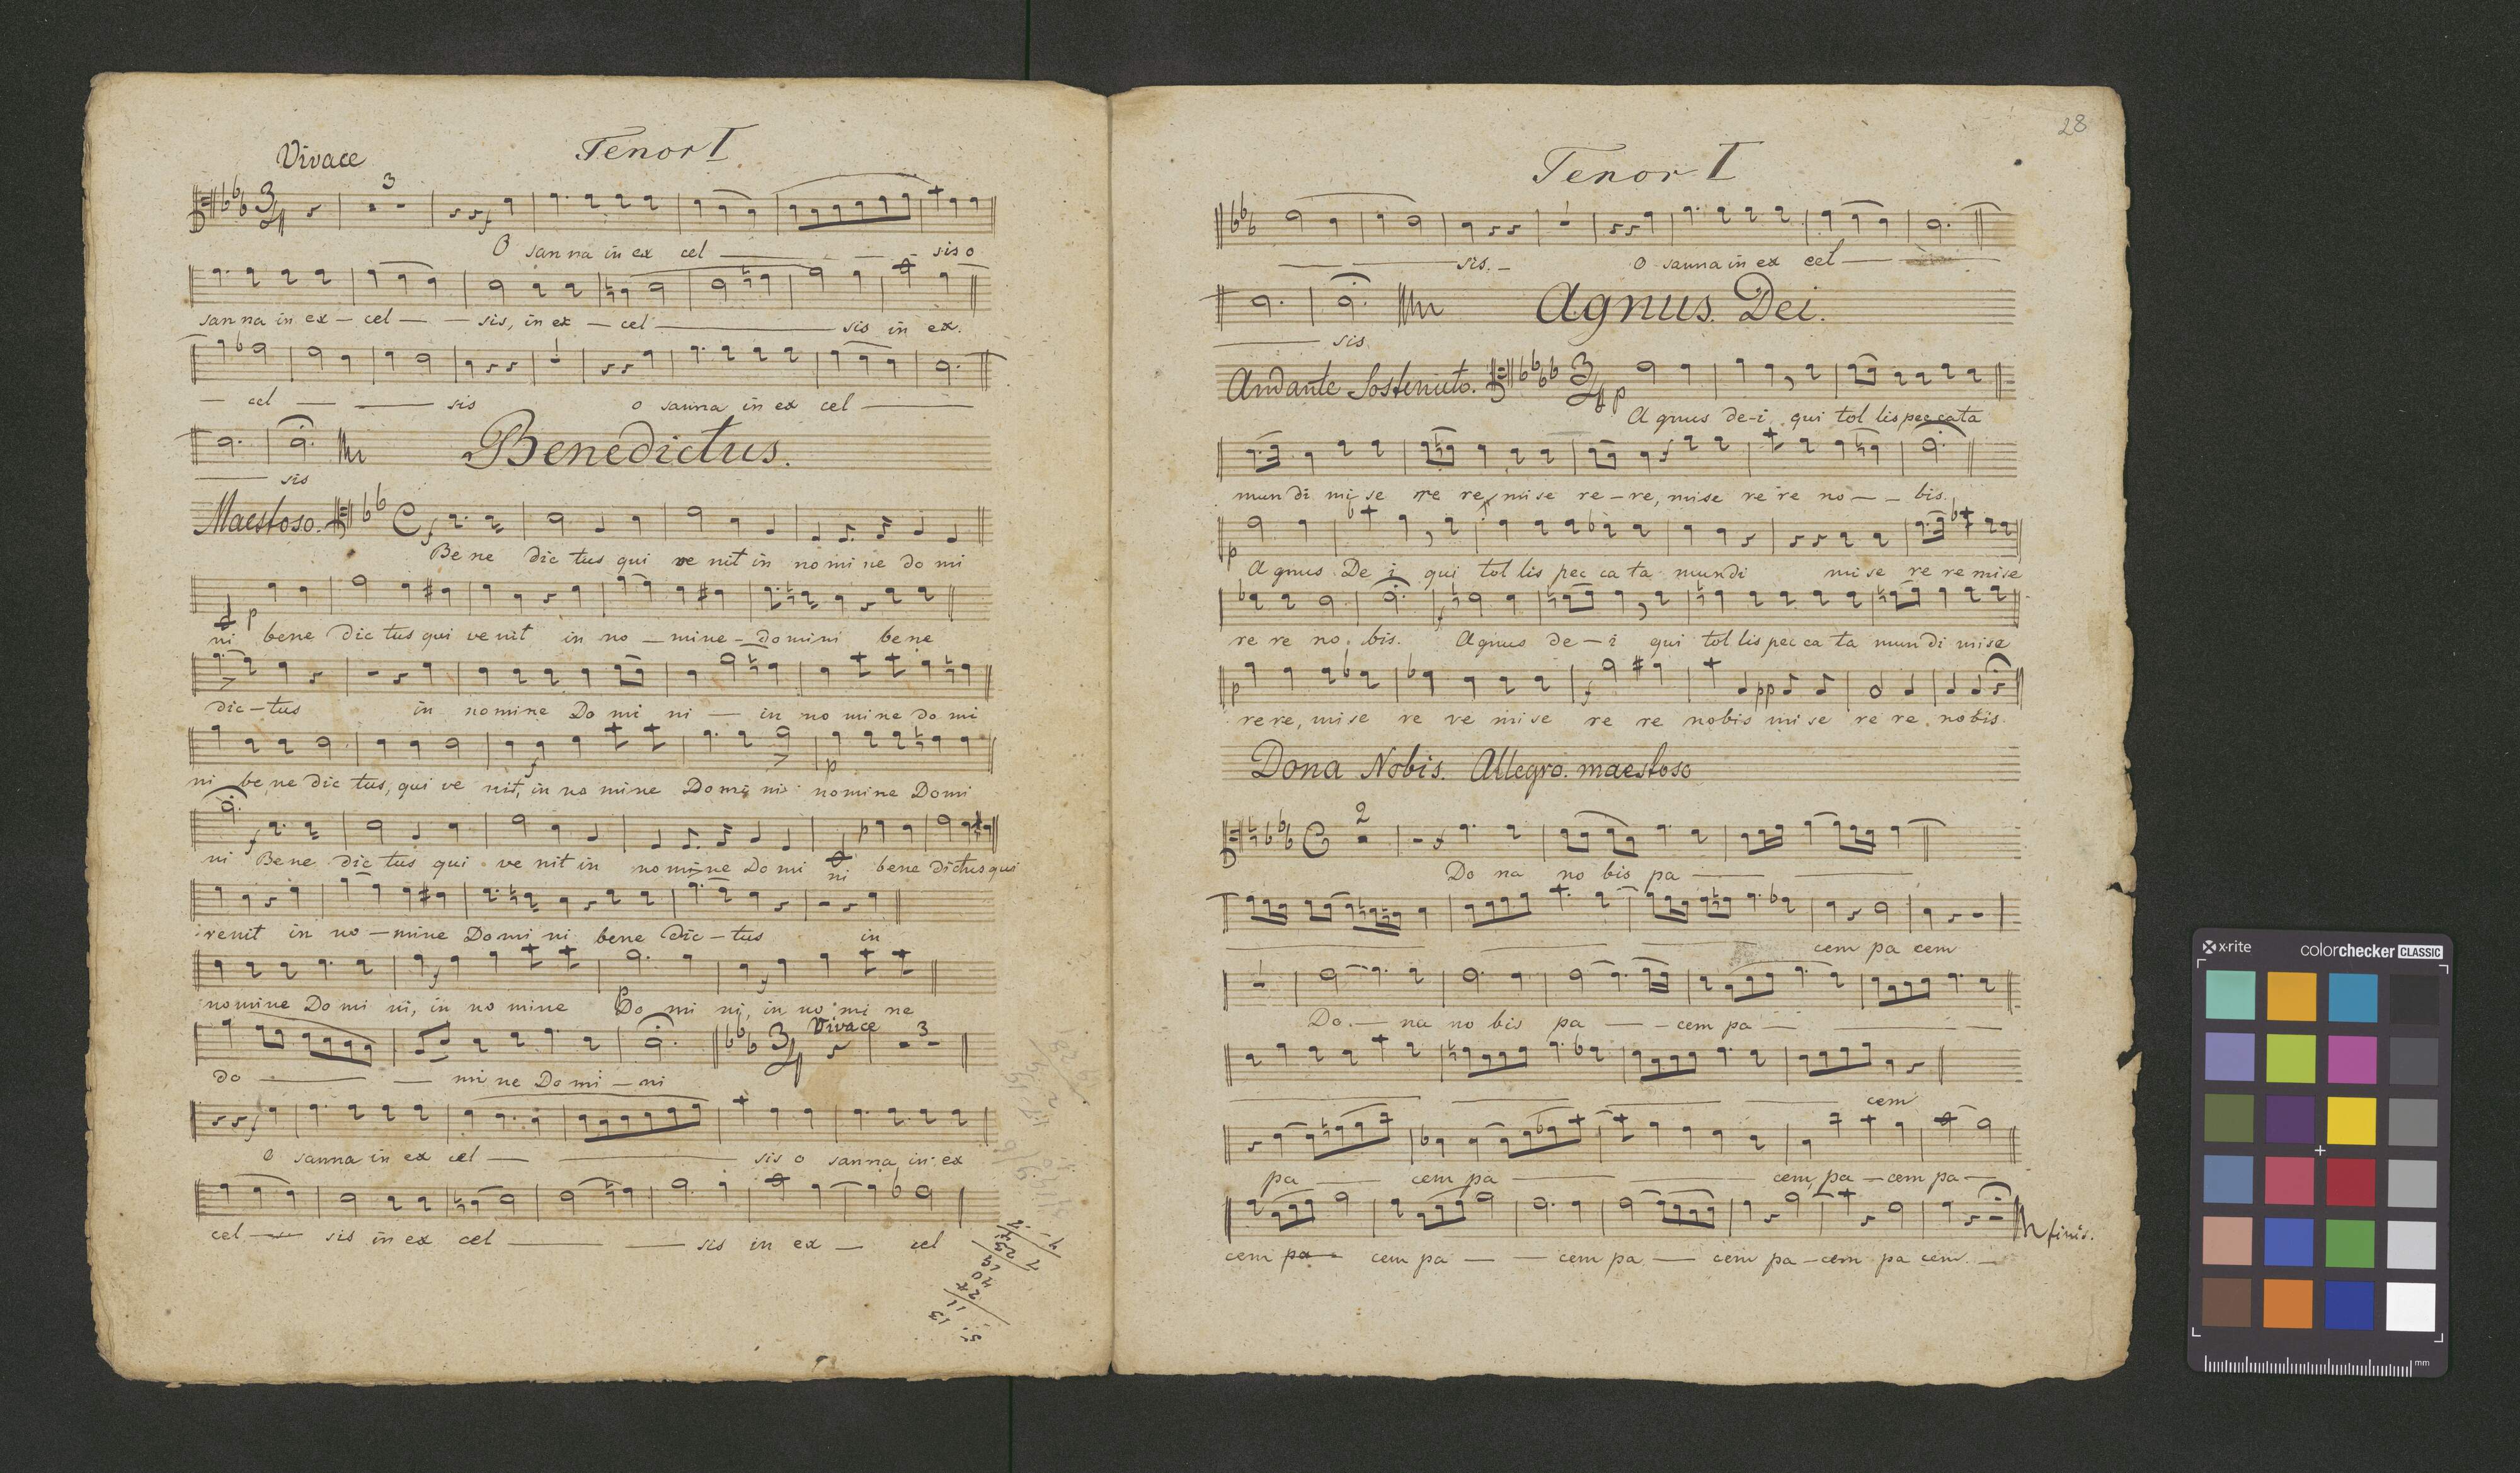 Tenor I
Vivace
3
O san na in ex cel sis o
san na in ex - cel - - sis, in ex - cel sis in ex.
cel sis o sanna in ex cel
Benedictus.
sis
Maestoso.
Be ne dic tus qui ve nit in no mi ne do mi
ni bene dic tus qui ve nit in no - mine - domini bene
dic - tus in nomine Do mi ni - in no mine do mi
ni be ne dic tus, qui ve nit, in no mine Domi ni nomine Domi
ni Bene dic tus qui ve nit in no mi ne Do mi ni bene dictus qui
venit in no - mine Domi ni bene dic - tus in
nomine Do mi ni, in no mine Do mi ni, in no mi ne
Vivace
3
do mi ne Do mi - ni
O sanna in ex cel sis o sanna in ex
cel sis in ex cel sis in ex - cel
28
Tenor I
sis. - O sanna in ex cel
Agnus Dei.
sis
Andante Sostenuto.
A gnus de - i qui tol lis pec cata
mun di mi se re re, mise re - re, mise re re no - - bis.
A gnus De i qui tol lis pec ca ta mundi mi se re re mise
re re no bis. Agnus de - i qui tol lis pec ca ta mun di mise
re re, mise re re mise re re nobis mi se re re nobis
Dona Nobis. Allegro. maestoso
2
Do na no bis pa
cem pa cem
Do. - na no bis pa - - cem pa -
cem
pa cem pa cem, pa - cem pa -
cem pa cem pa - - cem pa - cem pa - cem pa cem. -
finis.
x-rite colorchecker CLASSIC
mm